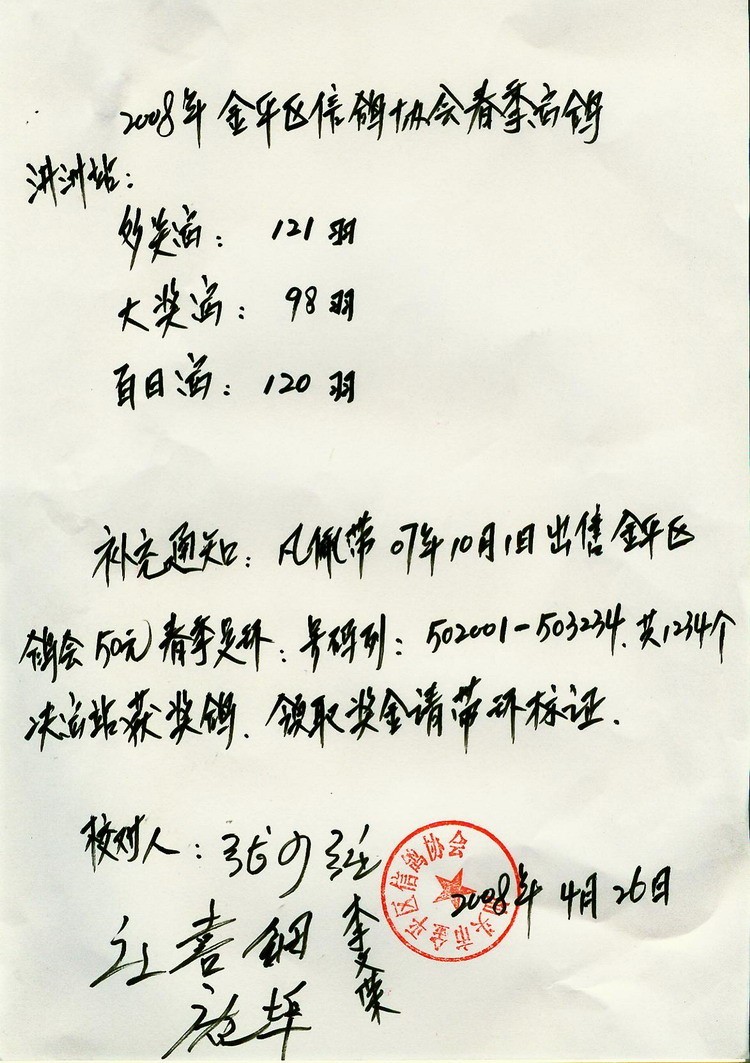 2008年金平区信鸽协会春季赛鸽
洪洲站:
多关赛: 121羽
大奖赛: 98羽
百日赛: 120羽
补充通知: 凡佩带07年10月1日出售金平区
鸽会50元春季足环: 号码列: 502001-503234.共1234个
决赛站获奖鸽. 领取奖金请带环标证.
校对人:
汕头市金平区信鸽协会
2008年4月26日